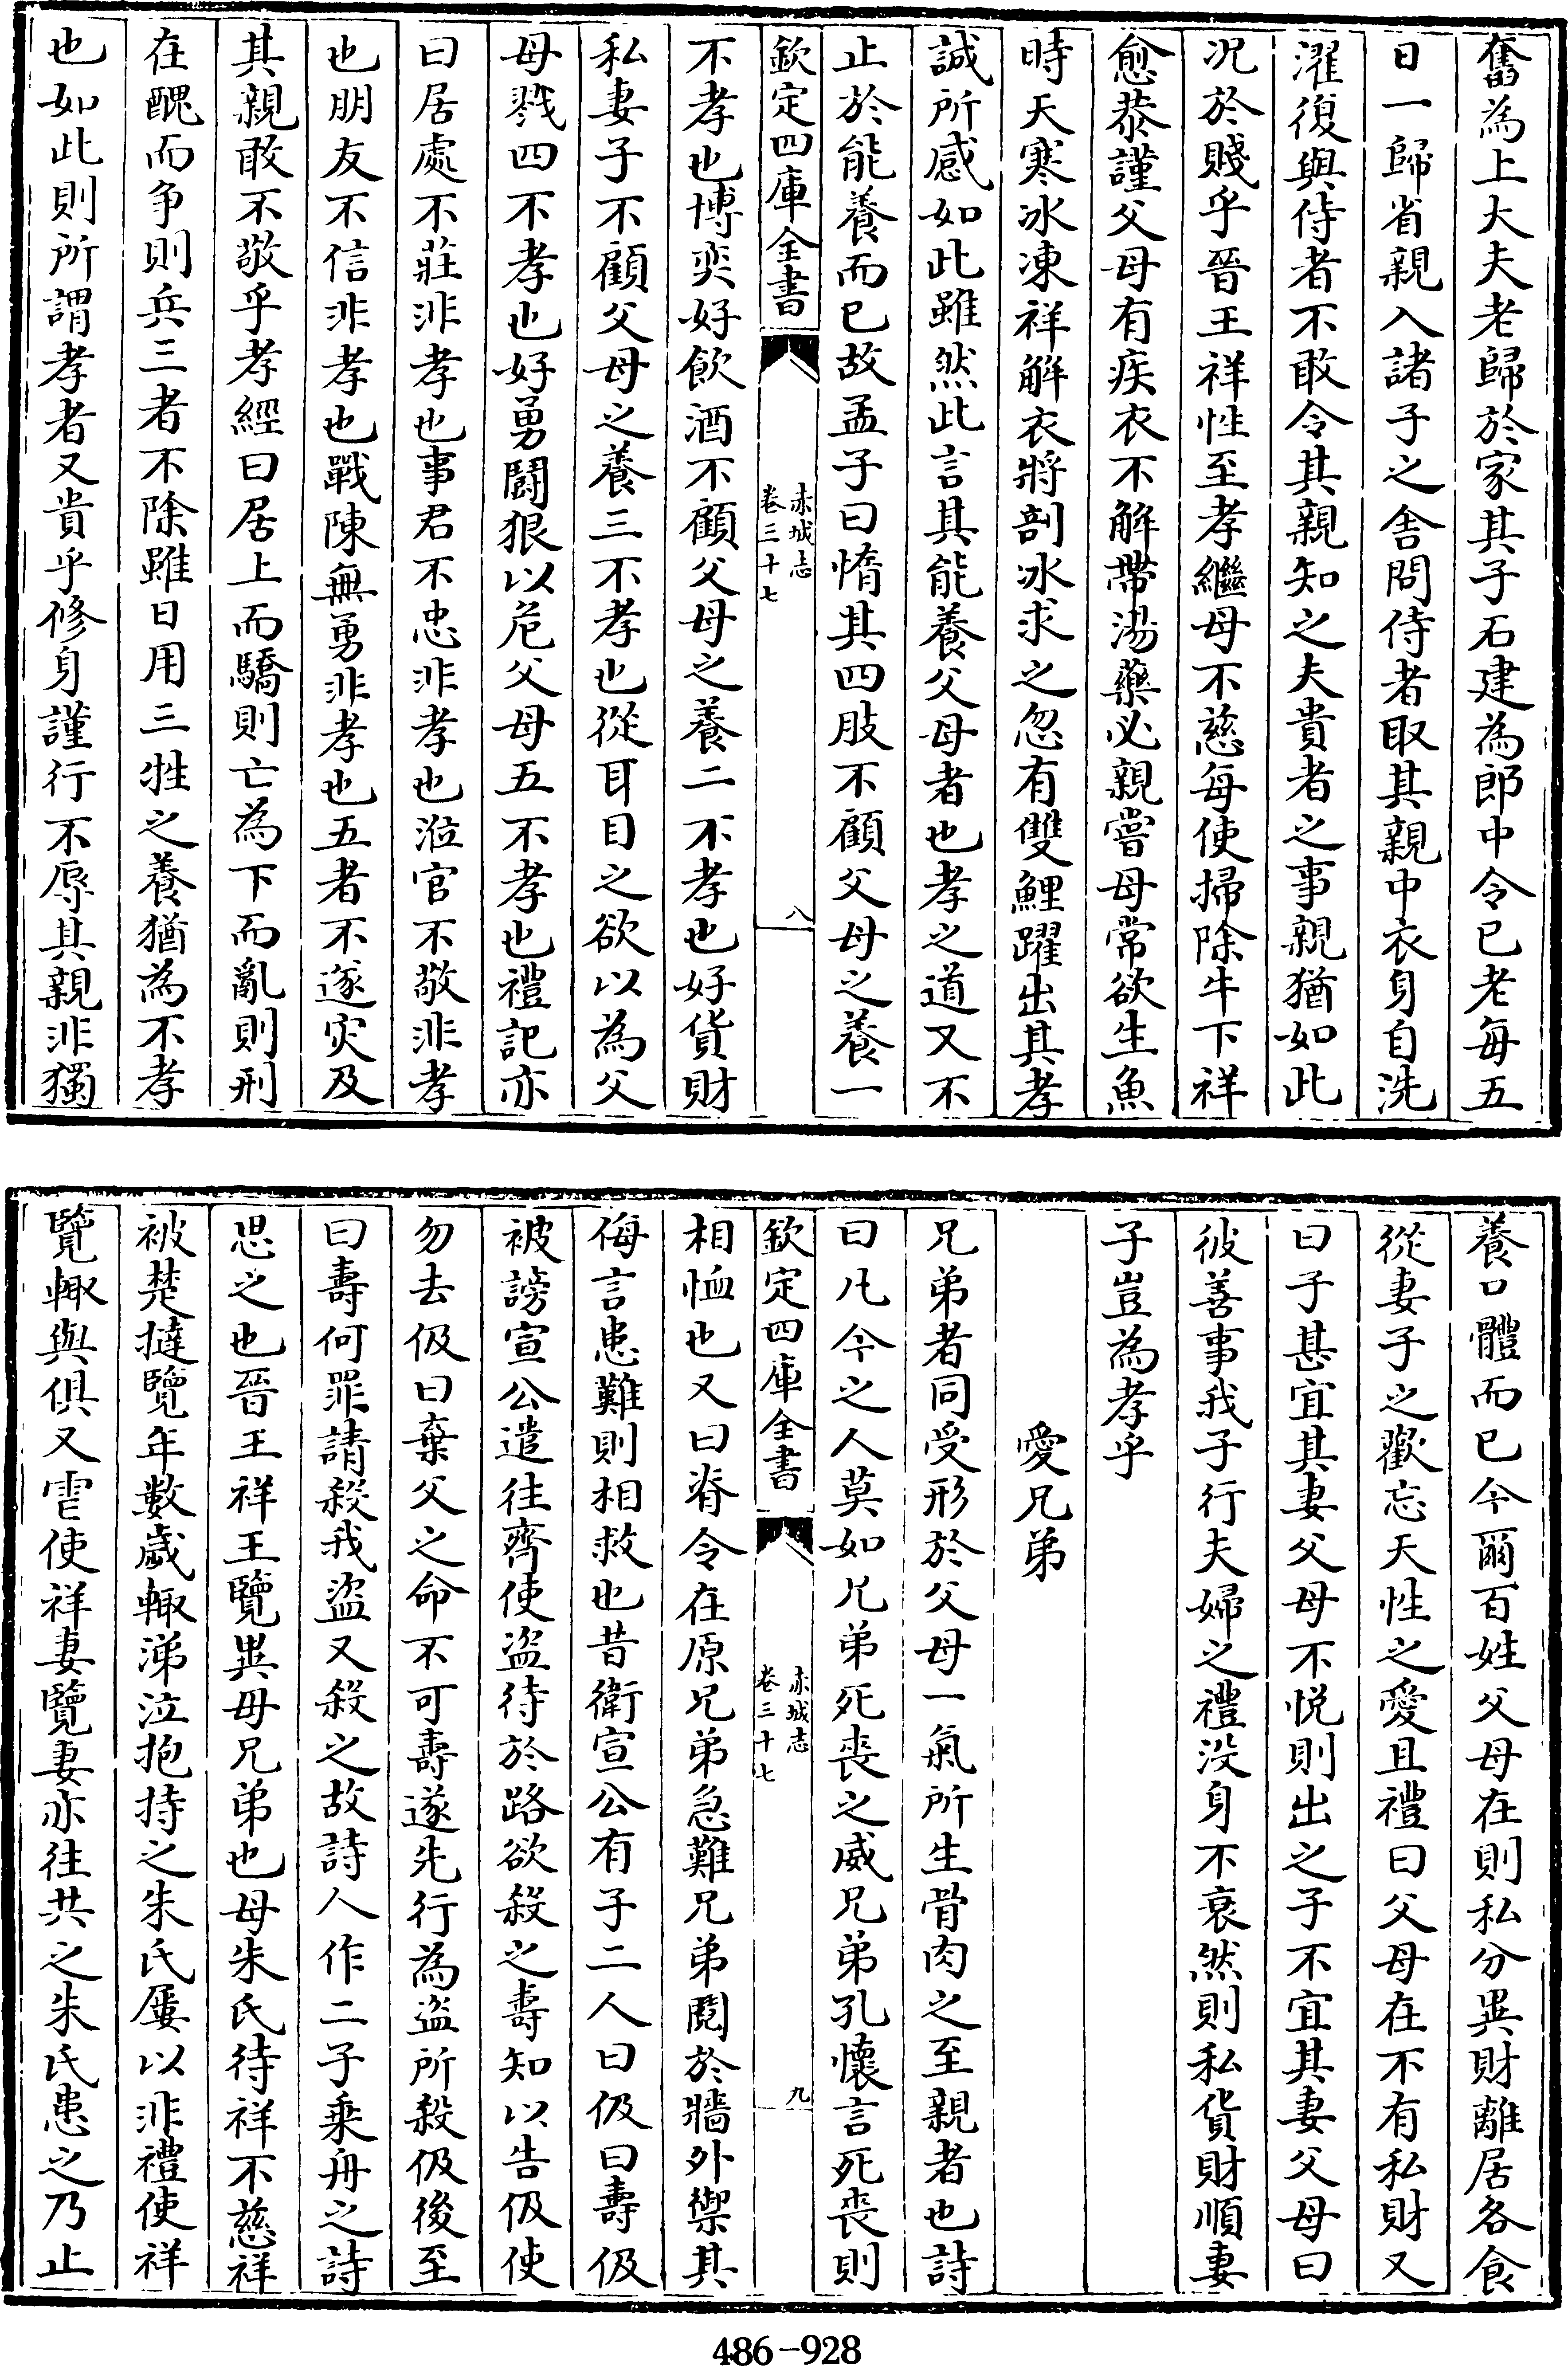 奮為上大夫老歸於家其子石建為郎中令已老每五
日一歸省親入諸子之舎問侍者取其親中衣身自洗
濯復與侍者不敢令其親知之夫貴者之事親猶如此
况於賤乎晉王祥性至孝繼母不慈每使掃除牛下祥
愈恭謹父母有疾衣不解帶湯藥必親嘗母常欲生魚
時天寒冰凍祥解衣將剖冰求之忽有雙鯉躍出其孝
誠所感如此雖然此言其能養父母者也孝之道又不
止於能養而已故孟子曰惰其四肢不顧父母之養一
欽定四庫全書
赤城志
卷三十七
八
不孝也博奕好飲酒不顧父母之養二不孝也好貨財
私妻子不顧父母之養三不孝也從耳目之欲以為父
母戮四不孝也好勇鬪狠以危父母五不孝也禮記亦
曰居處不莊非孝也事君不忠非孝也涖官不敬非孝
也朋友不信非孝也戰陳無勇非孝也五者不遂灾及
其親敢不敬乎孝經曰居上而驕則亡為下而亂則刑
在醜而争則兵三者不除雖日用三牲之養猶為不孝
也如此則所謂孝者又貴乎修身謹行不辱其親非獨
養口體而已今爾百姓父母在則私分異財離居各食
從妻子之歡忘天性之愛且禮曰父母在不有私財又
曰子甚宜其妻父母不悦則出之子不宜其妻父母曰
彼善事我子行夫婦之禮没身不衰然則私貨財順妻
子豈為孝乎
愛兄弟
兄弟者同受形於父母一氣所生骨肉之至親者也詩
曰凡今之人莫如兄弟死喪之威兄弟孔懷言死喪則
欽定四庫全書
赤城志
卷三十七
九
相恤也又曰脊令在原兄弟急難兄弟䦧於牆外禦其
侮言患難則相救也昔衛宣公有子二人曰伋曰壽伋
被謗宣公遣往齊使盜待於路欲殺之壽知以告伋使
勿去伋曰棄父之命不可壽遂先行為盜所殺伋後至
曰壽何罪請殺我盜又殺之故詩人作二子乗舟之詩
思之也晉王祥王覽異母兄弟也母朱氏待祥不慈祥
被楚撻覽年數歲輙涕泣抱持之朱氏屢以非禮使祥
覽輙與俱又虐使祥妻覽妻亦往共之朱氏患之乃止
486-928